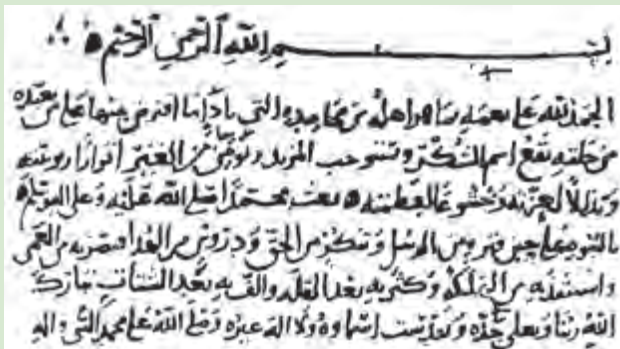 بسم الله الرحمن الرحيم
الحمد لله على نعمه بما هو أهله من محامده التي بأدائها افترض منها على من تعبده
من خلقه يقع اسم الشكر وتستوجب المزيد من العبر إقرارا بربوبيته
وتذللا لعزته وخشوعا لعظمته بعث محمدا صلى الله عليه وعلى
بالنبوة على حين فترة من الرسل من الحق ودروس من الهدى فبصر به من العمى
واستنقذ به من الهلكة وكثر به بعد القلة وألف به بعد الشتات تبارك
الله ربنا وتعالى جده وتقدست أسماؤه ولا إله غيره وصلى الله على محمد النبي وآله